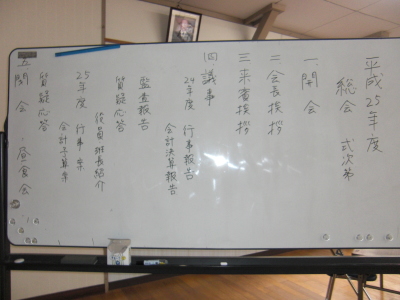 平成25年度
総会 式次第
一.開会
二.会長挨拶
三.来賓挨拶
四.議事
24年度 行事報告
会計決算報告
監査報告
質疑応答
役員班長紹介
25年度 行事案
会計予算案
質疑応答
五.閉会.昼食会